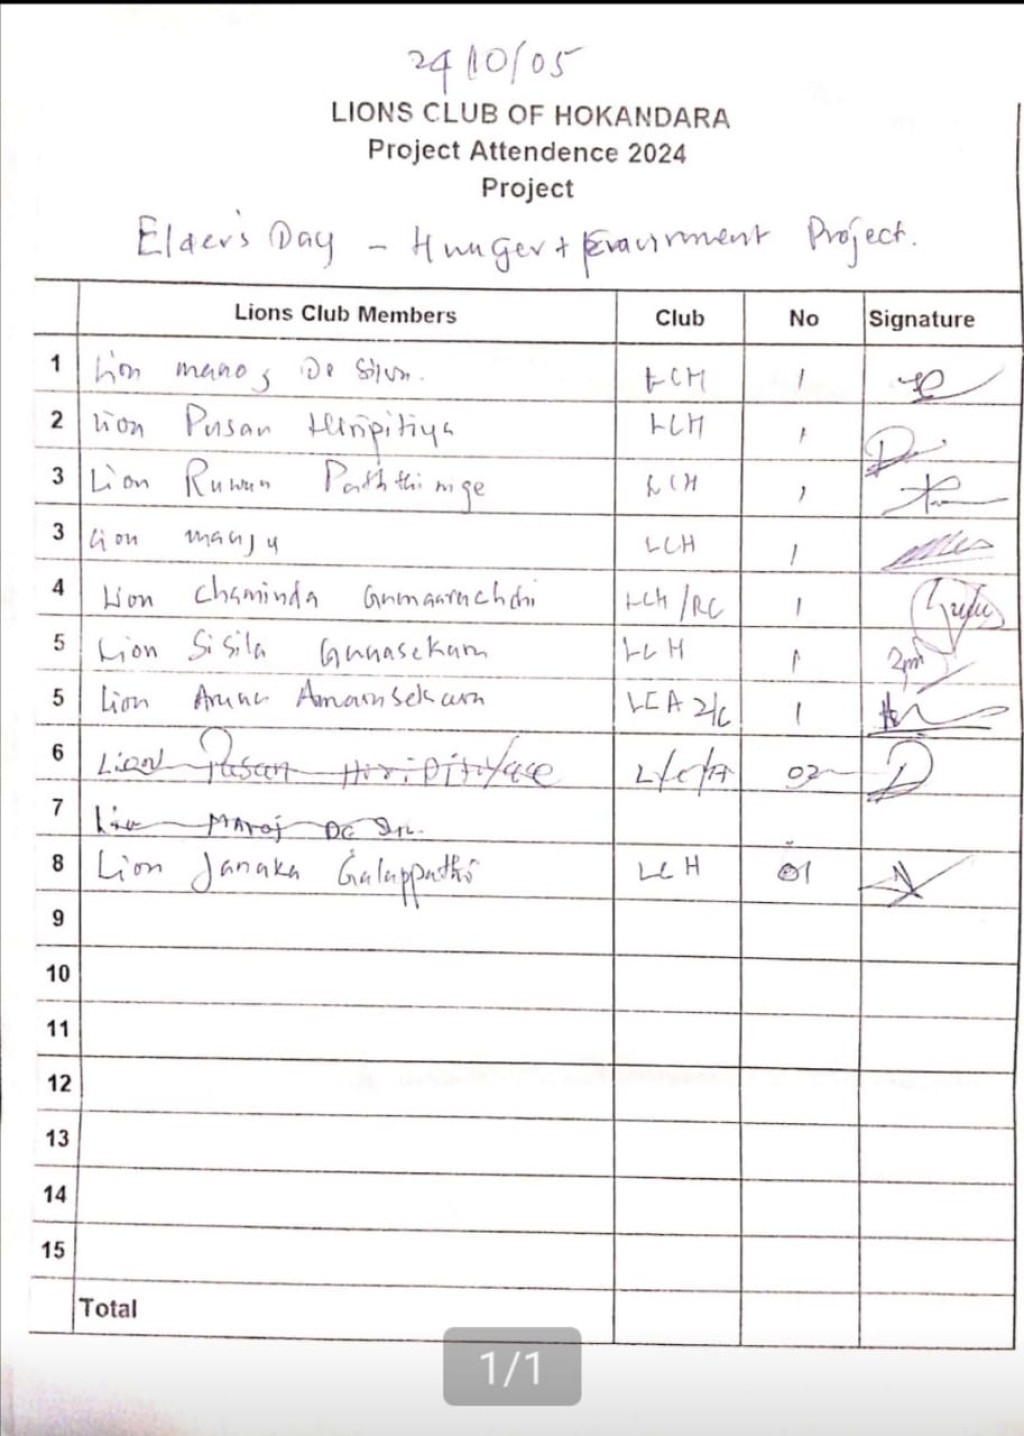 24/10/05
LIONS CLUB OF HOKANDARA
Project Attendence 2024
Project
Elder's Day - Hunger + Project.
Lions Club Members Club No Signature
1 Lion manoj De Silva. LCH 1
2 Lion Pusan Hiripitiya LCH 1
3 Lion Ruwan Paththinige LCH 1
3 Lion manju LCH 1
4 Lion Chaminda LCH/RC 1
5 Lion Sisila Gunasekara LCH 1
5 Lion Aruna Amarasekara 1
6 Lion Pusan L/C/H 02
7 Lion Manoj De
8 Lion Janaka Galappaththi LCH 01
9
10
11
12
13
14
15
Total
1/1